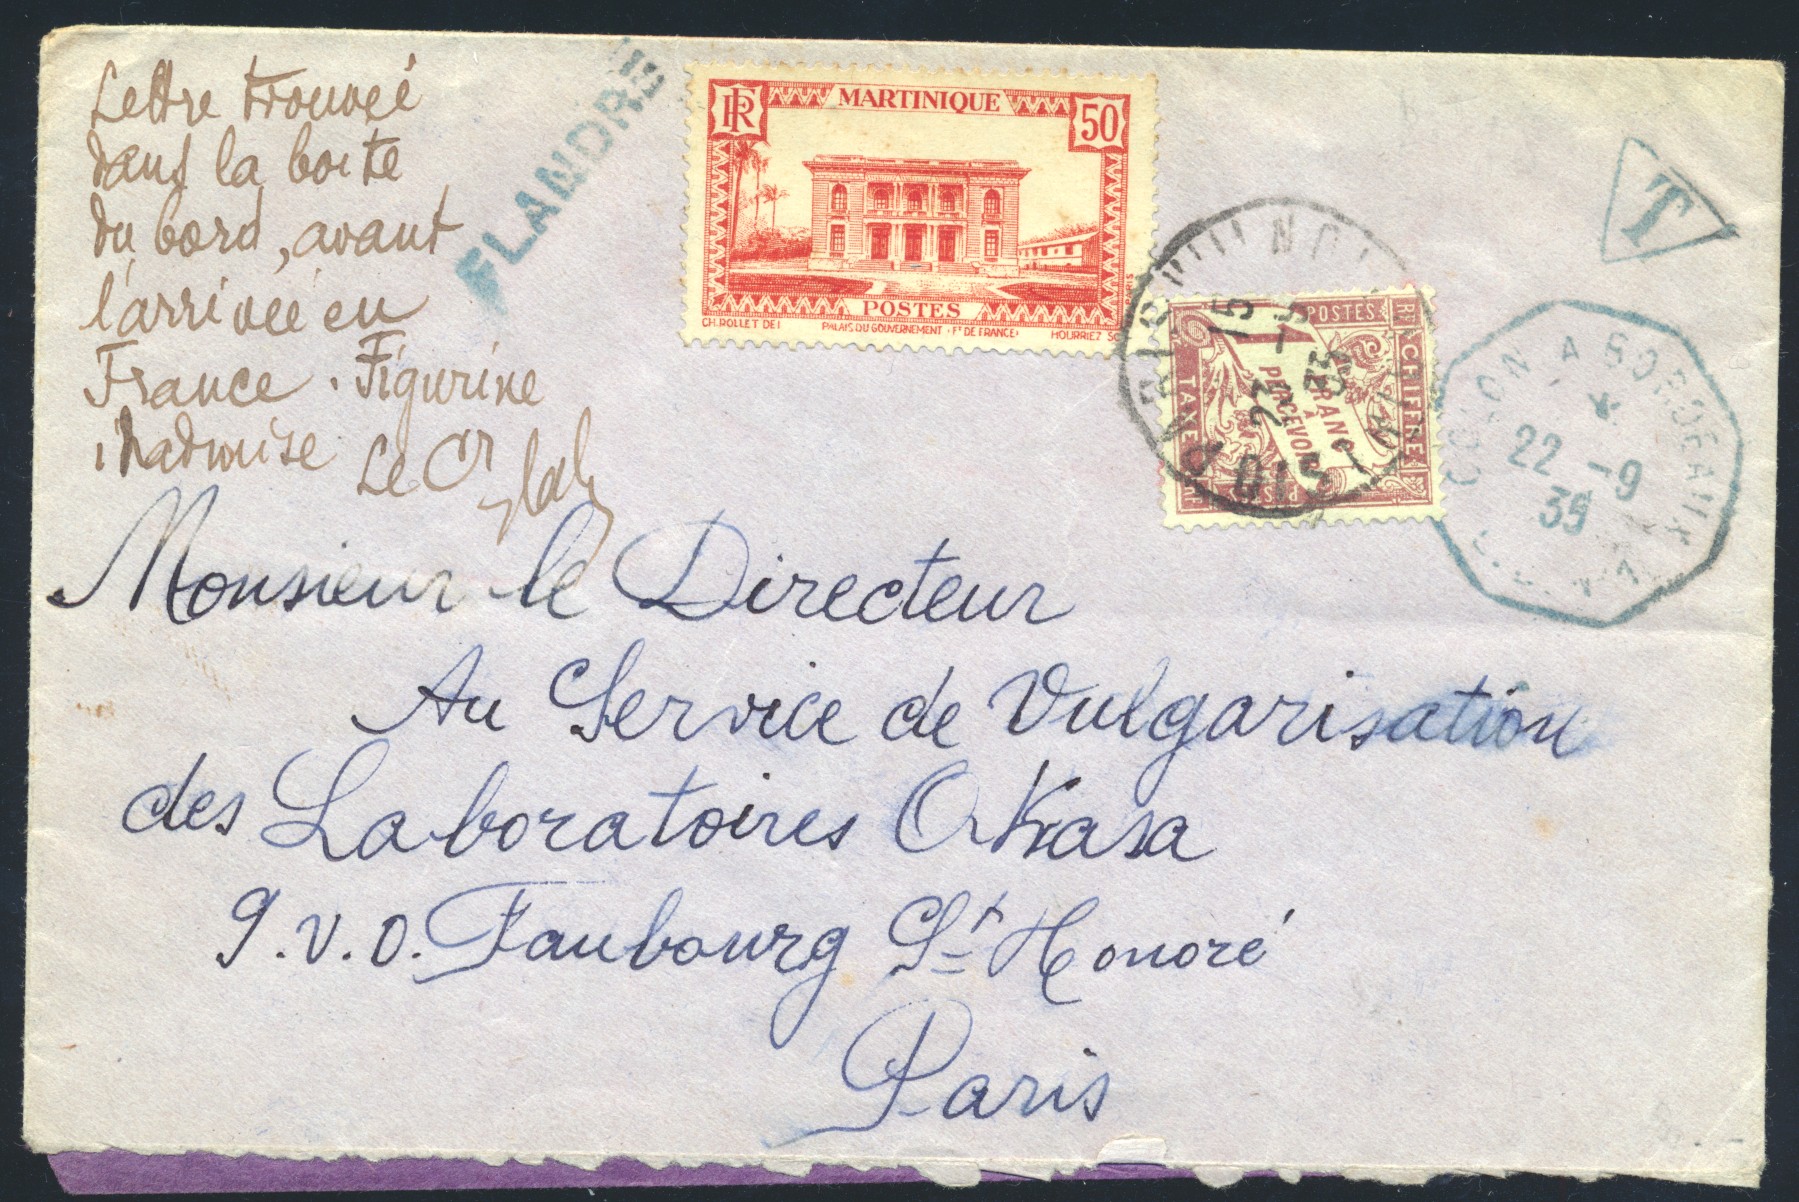 Lettre trouvée
dans la boite
du bord, avant
l'arrivée en
France. Figurine
inadmise Le Cr
FLANDRE
RF
MARTINIQUE
50
POSTES
CH. ROLLET DEL
PALAIS DU GOUVERNEMENT (FT DE FRANCE)
HOURRIEZ SC
T
POSTES
CHIFFRE
TAXE
1 FRANC
À
PERCEVOIR
PARIS
DIST
15
23 -9
COLON A BORDEAUX
22 -9
39
Monsieur le Directeur
Au Service de Vulgarisation
des Laboratoires Okasa
9.v.o. Faubourg St Honoré
Paris